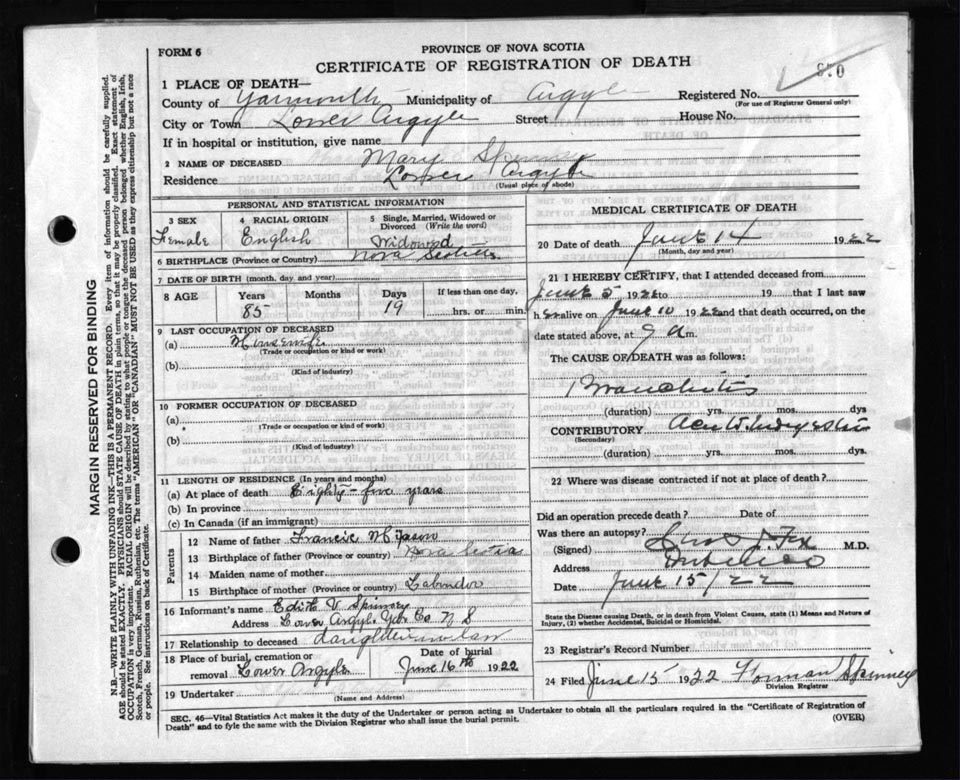 FORM 6
PROVINCE OF NOVA SCOTIA
CERTIFICATE OF REGISTRATION OF DEATH
1 PLACE OF DEATH—
County of Yarmouth Municipality of Argyle Registered No.
(For use of Registrar General only)
City or Town Lower Argyle Street House No.
If in hospital or institution, give name
2 NAME OF DECEASED Mary Spinney
Residence Lower Argyle
(Usual place of abode)
PERSONAL AND STATISTICAL INFORMATION
3 SEX 4 RACIAL ORIGIN 5 Single, Married, Widowed or Divorced (Write the word)
Female English Widowed
6 BIRTHPLACE (Province or Country) Nova Scotia
7 DATE OF BIRTH (month, day and year)
8 AGE Years Months Days If less than one day,
85 19 hrs. or min.
9 LAST OCCUPATION OF DECEASED
(a) Housewife
(Trade or occupation or kind or work)
(b)
(Kind of industry)
10 FORMER OCCUPATION OF DECEASED
(a)
(Trade or occupation or kind of work)
(b)
(Kind of industry)
11 LENGTH OF RESIDENCE (In years and months)
(a) At place of death Eighty-five years
(b) In province
(c) In Canada (if an immigrant)
Parents
12 Name of father Francis
13 Birthplace of father (Province or country) Nova Scotia
14 Maiden name of mother
15 Birthplace of mother (Province or country) Labrador
16 Informant's name Edith V Spinney
Address Lower Argyle Yar Co. N S
17 Relationship to deceased daughter in law
18 Place of burial, cremation or removal Lower Argyle Date of burial June 16th 1922
19 Undertaker
(Name and Address)
MEDICAL CERTIFICATE OF DEATH
20 Date of death June 14 1922
(Month, day and year)
21 I HEREBY CERTIFY, that I attended deceased from
June 5 1922 to 19 that I last saw
her alive on June 10 1922 and that death occurred, on the
date stated above, at 9 am.
The CAUSE OF DEATH was as follows:
Bronchitis
(duration) yrs. mos. dys
CONTRIBUTORY Acute Indigestion
(Secondary)
(duration) yrs. mos. dys.
22 Where was disease contracted if not at place of death?
Did an operation precede death? Date of
Was there an autopsy?
(Signed) Fox M.D.
Address Pubnico
Date June 15/22
State the Disease causing Death, or in death from Violent Causes, state (1) Means and Nature of Injury, (2) whether Accidental, Suicidal or Homicidal.
23 Registrar's Record Number
24 Filed June 15 1922 Forman Spinney
Division Registrar
SEC. 46—Vital Statistics Act makes it the duty of the Undertaker or person acting as Undertaker to obtain all the particulars required in the "Certificate of Registration of
Death" and to fyle the same with the Division Registrar who shall issue the burial permit. (OVER)
MARGIN RESERVED FOR BINDING
N.B.—WRITE PLAINLY WITH UNFADING INK—THIS IS A PERMANENT RECORD. Every item of information should be carefully supplied.
AGE should be stated EXACTLY. PHYSICIANS should STATE CAUSE OF DEATH in plain terms, so that it may be properly classified. Exact statement of
OCCUPATION is very important. RACIAL ORIGIN will be described by stating to what people or tongue the deceased person belonged whether English, Irish,
Scotch, French, German, Russian, Ruthenian, etc. The terms "AMERICAN" OR "CANADIAN" MUST NOT BE USED as they express citizenship but not a race
or people. See instructions on back of Certificate.